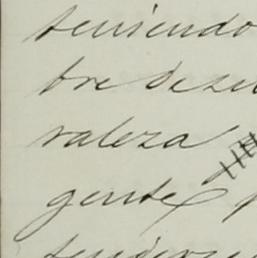 teniendo
bre deze
raleza
gente